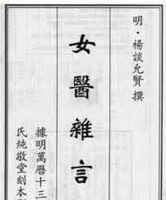 明·楊談允賢 撰
女醫雜言
據明萬曆十三
氏純敬堂刻本